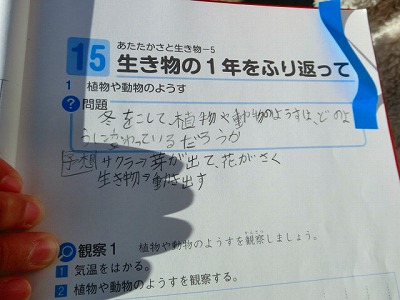 あたたかさと生き物-5
15 生き物の1年をふり返って
1 植物や動物のようす
? 問題
冬をこして、植物や動物のようすは、どのよ
うに変わっているだろうか
予想 サクラ→芽が出て、花がさく
生き物→動き出す
観察1 植物や動物のようすを観察しましょう。
かんさつ
1 気温をはかる。
2 植物や動物のようすを観察する。